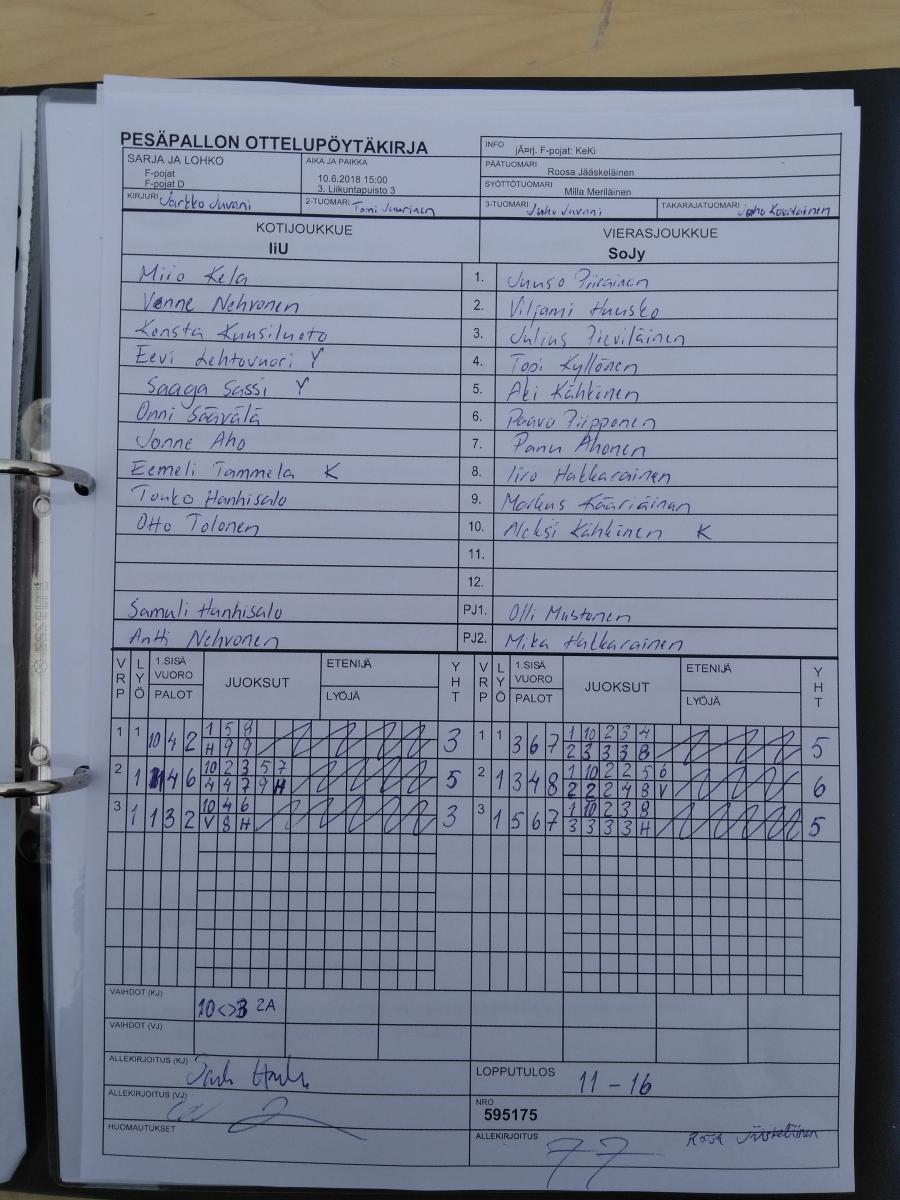 PESÄPALLON OTTELUPÖYTÄKIRJA
INFO jÃ¤rj. F-pojat: KeKi
SARJA JA LOHKO
F-pojat
F-pojat D
AIKA JA PAIKKA
10.6.2018 15:00
3. Liikuntapuisto 3
PÄÄTUOMARI Roosa Jääskeläinen
SYÖTTÖTUOMARI Milla Meriläinen
KIRJURI Jarkko Juvani 2-TUOMARI Tomi Juurinen 3-TUOMARI Juho Juvani TAKARAJATUOMARI
KOTIJOUKKUE VIERASJOUKKUE
IiU SoJy
Miio Kela 1. Juuso Piirainen
Venne Nehvonen 2. Viljami Huusko
Konsta Kuusiluoto 3. Julius Pieviläinen
Eevi Lehtovuori Y 4. Topi Kyllönen
Saaga Sassi Y 5. Aki Kähkönen
Onni Säävälä 6. Paavo Piipponen
Jonne Aho 7. Panu Ahonen
Eemeli Tammela K 8. Iiro Hakkarainen
Touko Hanhisalo 9. Markus Kääriäinen
Otto Tolonen 10. Aleksi Kähkönen K
11.
12.
Samuli Hanhisalo PJ1. Olli Mustonen
Antti Nehvonen PJ2. Mika Hakkarainen
VRP LYÖ 1.SISÄ VUORO PALOT JUOKSUT ETENIJÄ LYÖJÄ YHT VRP LYÖ 1.SISÄ VUORO PALOT JUOKSUT ETENIJÄ LYÖJÄ YHT
1 1 10 4 2 1 5 8 3 1 1 3 6 7 1 10 2 3 4 5
H 9 9 2 3 3 3 8
2 1 1 4 6 10 2 3 5 7 5 2 1 3 4 8 1 10 2 2 5 6 6
4 4 7 9 H 2 2 2 4 8 V
3 1 1 3 2 10 4 6 3 3 1 5 6 7 1 10 2 3 8 5
V 8 H 3 3 3 3 H
VAIHDOT (KJ) 10<>3 2A
VAIHDOT (VJ)
ALLEKIRJOITUS (KJ)
LOPPUTULOS 11 - 16
ALLEKIRJOITUS (VJ)
NRO
595175
HUOMAUTUKSET
ALLEKIRJOITUS Roosa Jääskeläinen